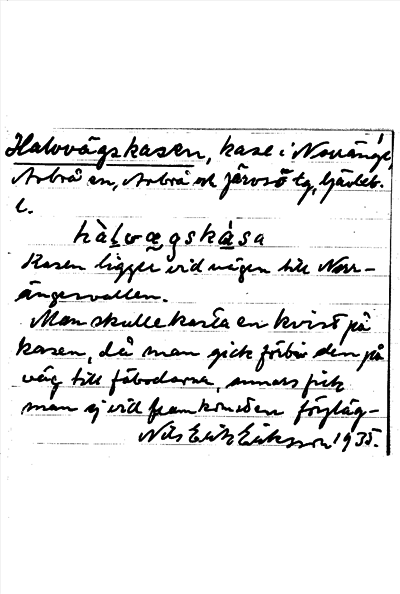 Halvvägskasen, kase i Norränge,
Arbrå sn, Arbrå och Järvsö tg, Gävleb.
l.
hàlvægskàsa
Kasen ligger vid vägen till Norr-
ängesvallen.
Man skulle kasta en kvist på
kasen, då man gick förbi den på
väg till fäbodarna, annars fick
man ej vid framkomsten
Nils Erik Eriksson 1935.